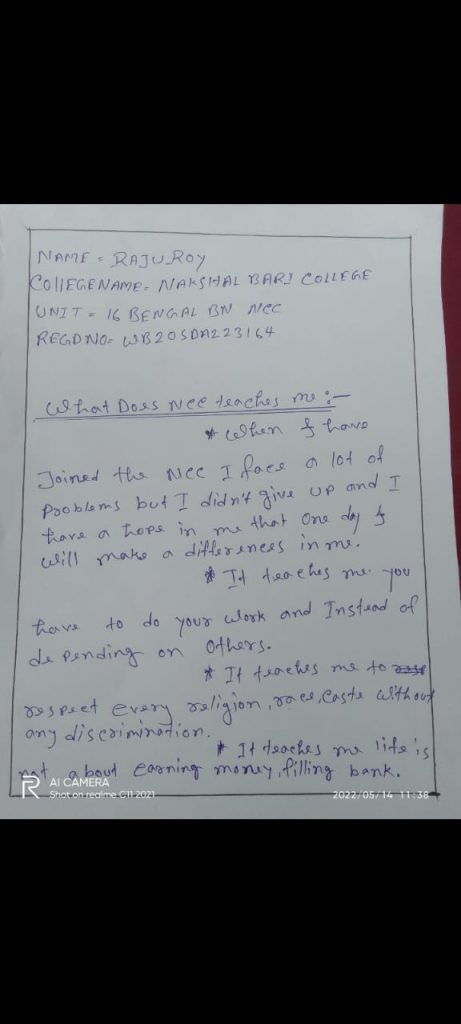 NAME = RAJU ROY
COllEGENAME= NAKSHAL BARI COLLEGE
UNIT = 16 BENGAL BN NCC
REGDNO= WB20SDA223164
What Does NCC teaches me :-
* When I have
Joined the NCC I face a lot of
Problems but I didn't give up and I
have a hope in me that One day I
will make a differences in me.
* It teaches me you
have to do your work and Instead of
depending on Others.
* It teaches me to
respect every religion, race, caste without
any discrimination.
* It teaches me life is
not about earning money, filling bank.
AI CAMERA
Shot on realme C11 2021
2022/05/14 11:38